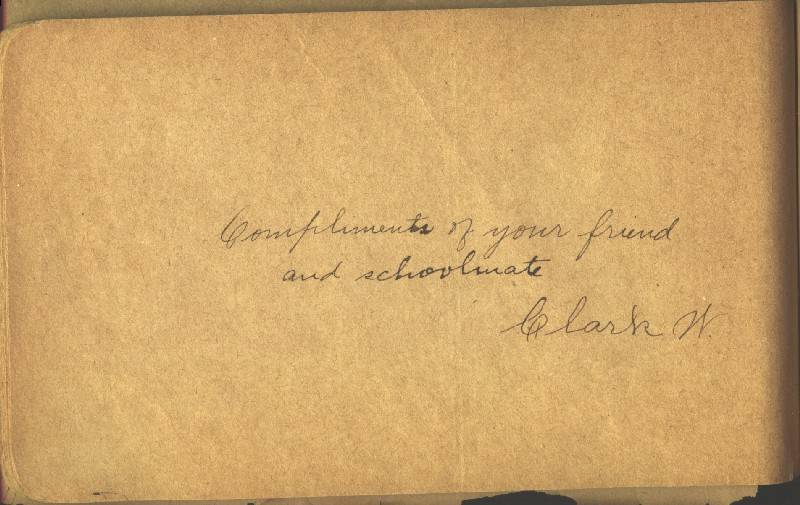 Compliments of your friend
and schoolmate
Clark W.